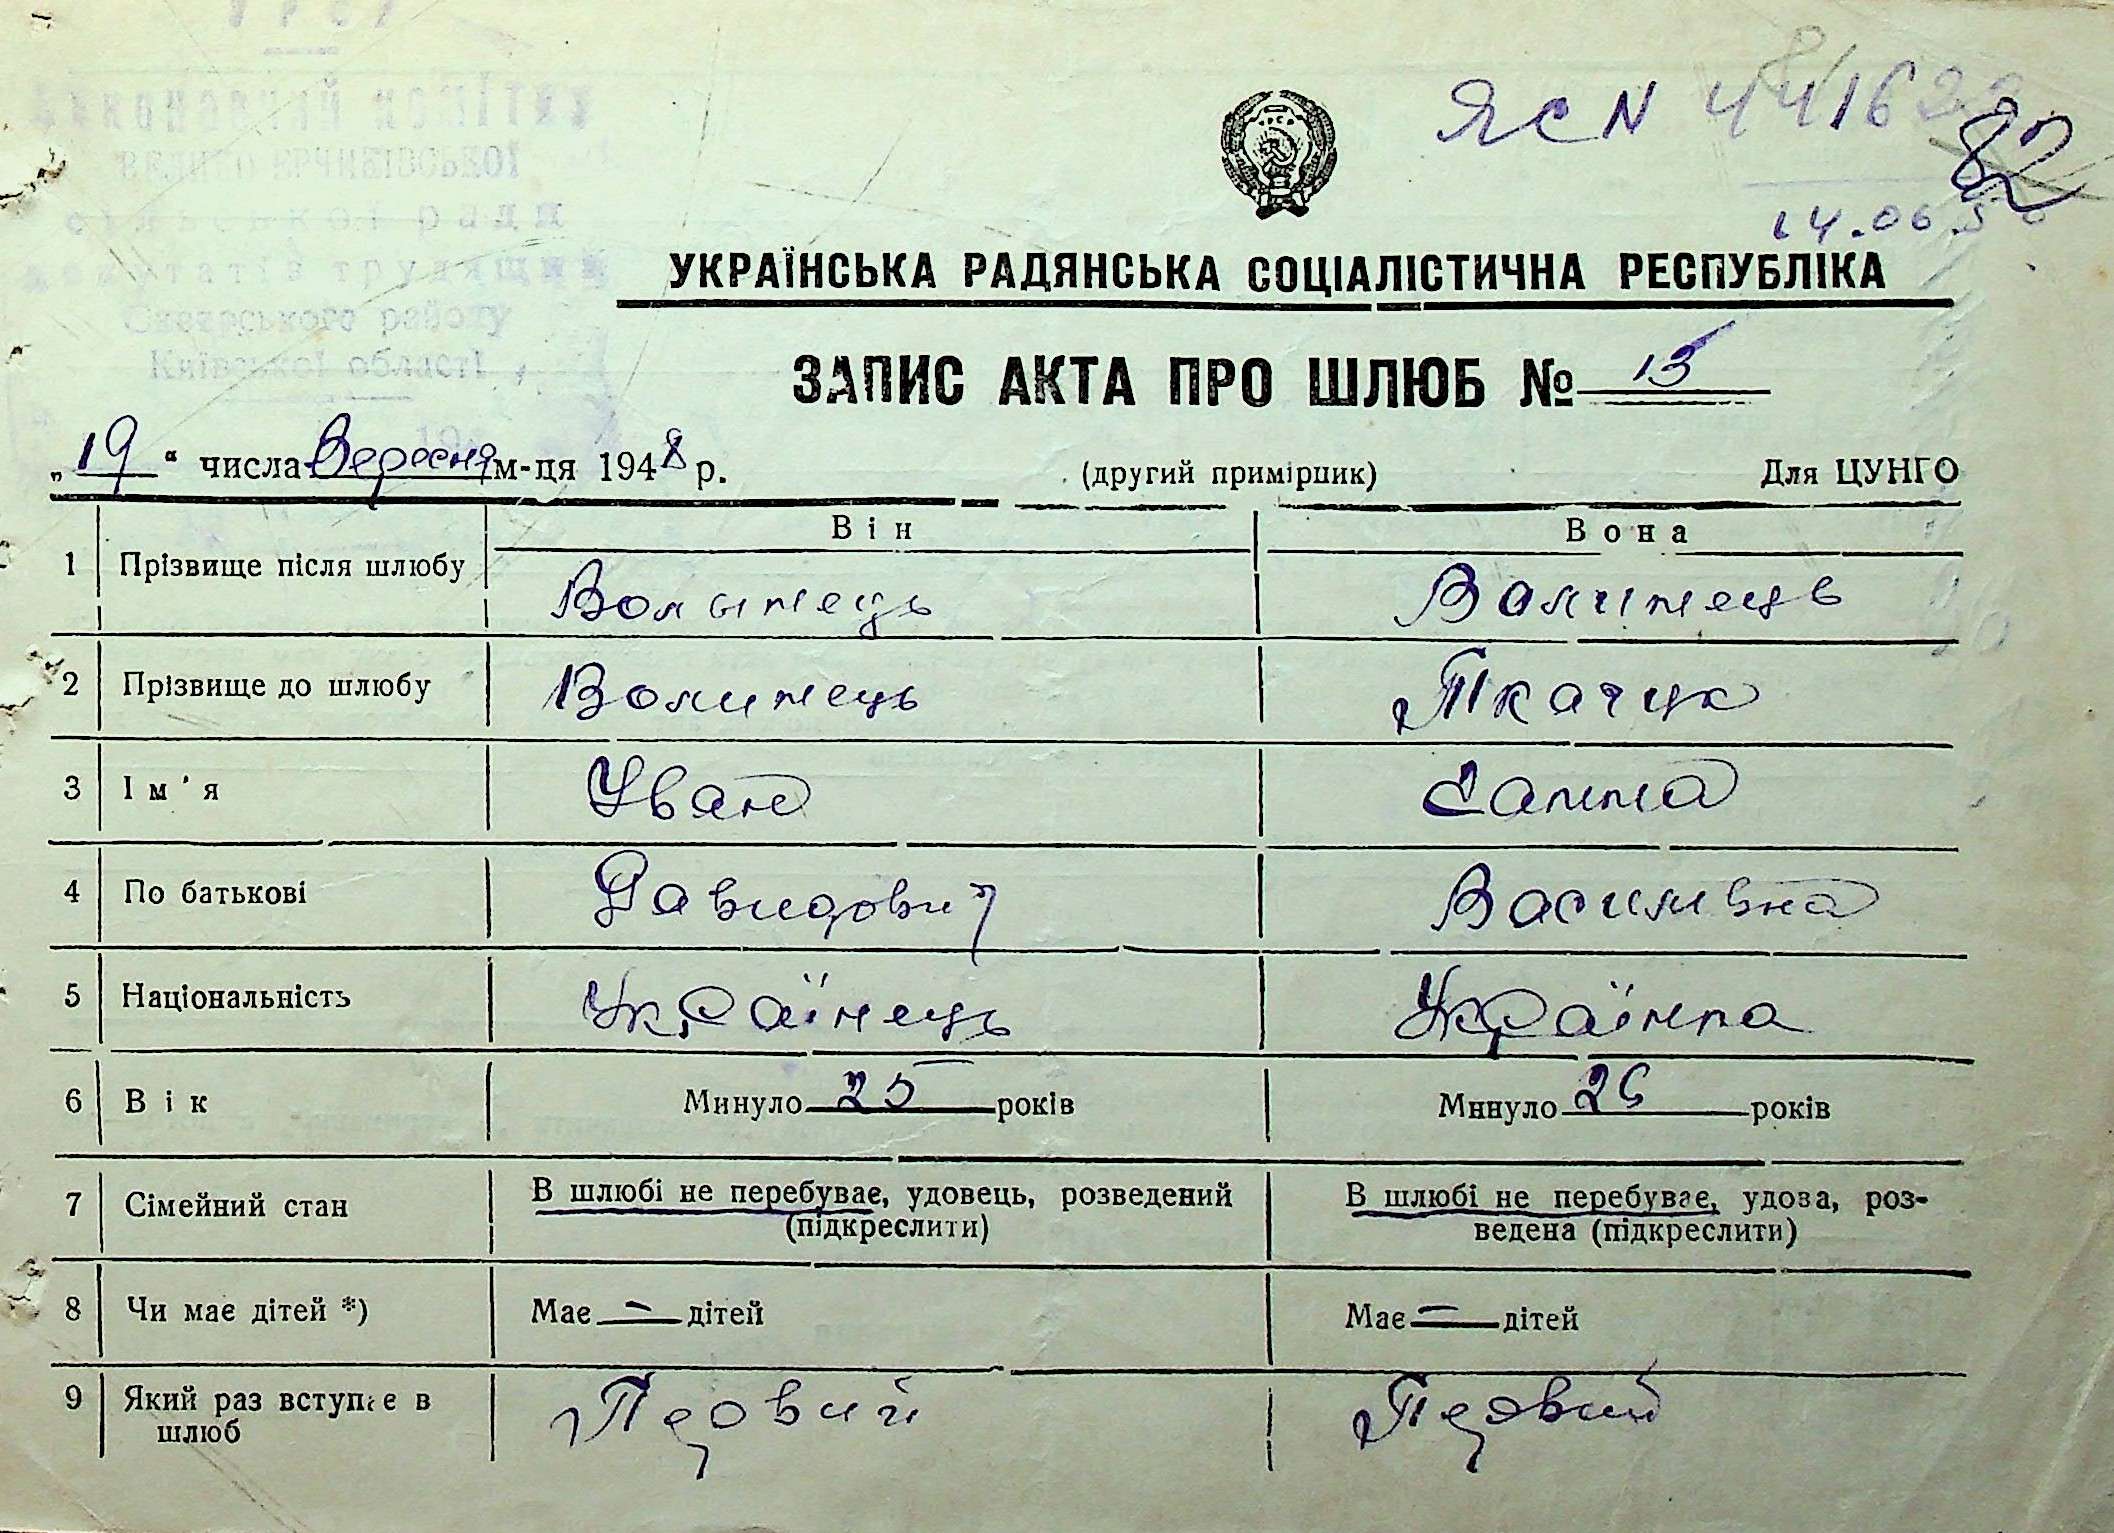 УРСР
Виконавчий комітет
ВЕЛИКО ЄРЧИКІВСЬКОЇ
сільської ради
депутатів трудящих
Сквирського району
Київської області
ЯС N 441623
82
14.06.5
УКРАЇНСЬКА РАДЯНСЬКА СОЦІАЛІСТИЧНА РЕСПУБЛІКА
ЗАПИС АКТА ПРО ШЛЮБ № 15
„19“ числа Вересня м-ця 1948 р. (другий примірник) Для ЦУНГО
Він Вона
1 Прізвище після шлюбу Волинець Волинець
2 Прізвище до шлюбу Волинець Ткачук
3 Ім'я Іван Ганна
4 По батькові Давидович Василивна
5 Національність Українець Українка
6 Вік Минуло 25 років Минуло 26 років
7 Сімейний стан В шлюбі не перебуває, удовець, розведений (підкреслити) В шлюбі не перебуває, удова, роз-
ведена (підкреслити)
8 Чи має дітей *) Має — дітей Має — дітей
9 Який раз вступає в шлюб Первий Первий